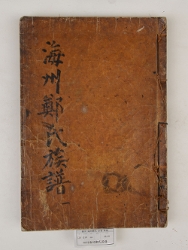 海州鄭氏族譜 一